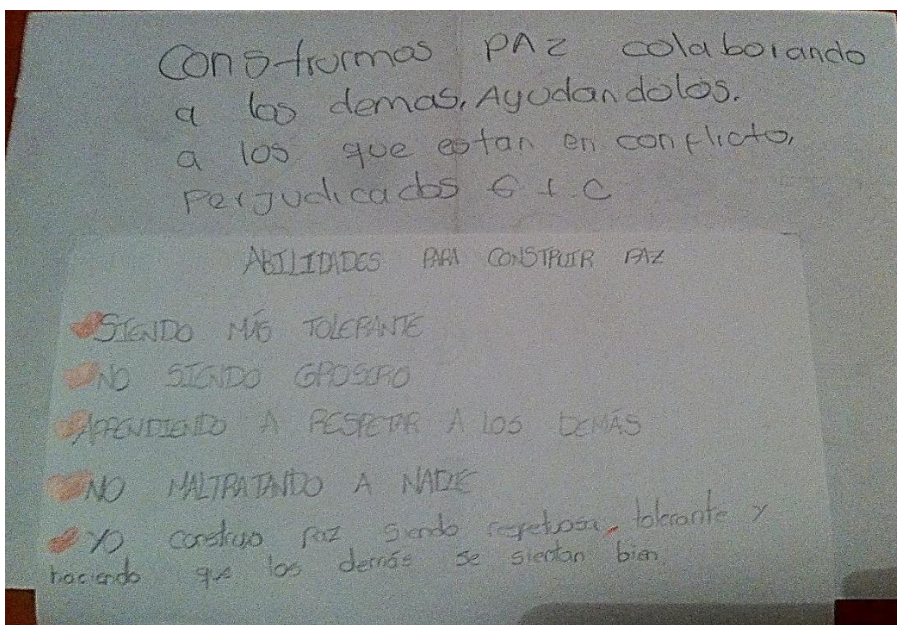 Construimos PAz colaborando
a los demas, Ayudandolos.
a los que estan en conflicto,
Perjudicados E t.C
ABILIDADES PARA CONSTRUIR PAZ
SIENDO MÁS TOLERANTE
NO SIENDO GROSERO
APRENDIENDO A RESPETAR A LOS DEMÁS
NO MALTRATANDO A NADIE
YO construyo paz siendo respetuosa, tolerante y
haciendo que los demás se sientan bien.